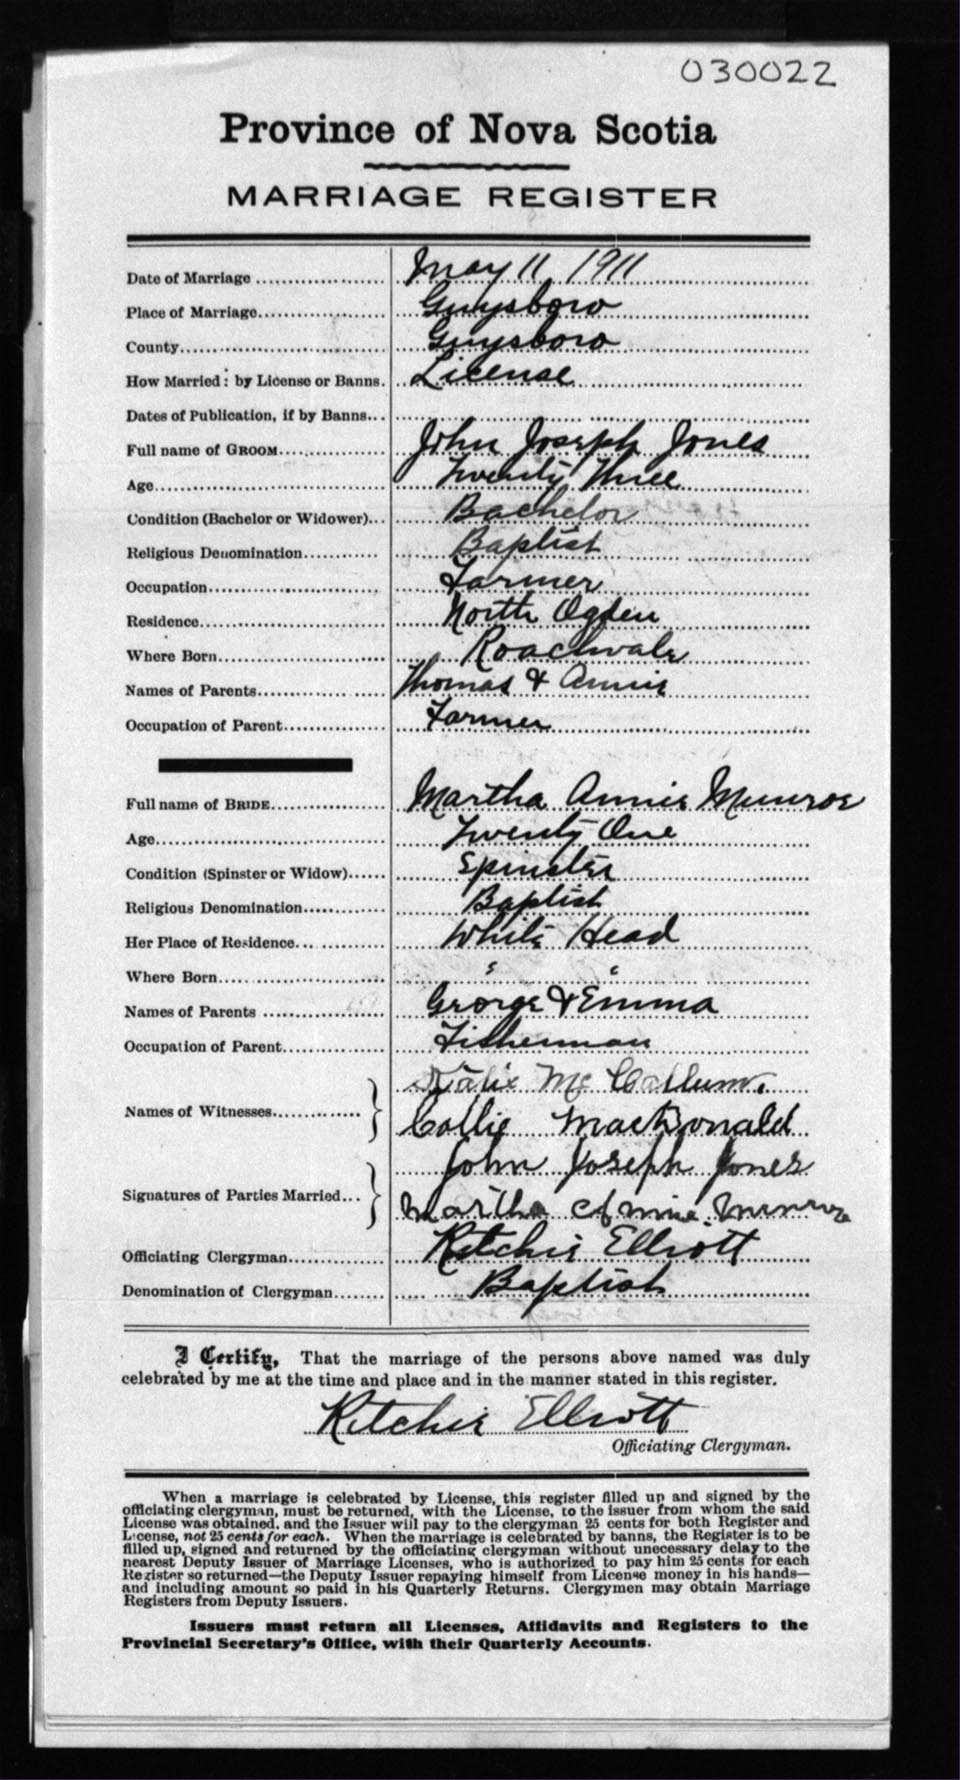 030022
Province of Nova Scotia
MARRIAGE REGISTER
Date of Marriage May 11, 1911
Place of Marriage Guysboro
County Guysboro
How Married: by License or Banns. License
Dates of Publication, if by Banns
Full name of GROOM John Joseph Jones
Age Twenty Three
Condition (Bachelor or Widower) Bachelor
Religious Denomination Baptist
Occupation Farmer
Residence North Ogden
Where Born Roachvale
Names of Parents Thomas & Annie
Occupation of Parent Farmer
Full name of BRIDE Martha Annie Munroe
Age Twenty One
Condition (Spinster or Widow) Spinster
Religious Denomination Baptist
Her Place of Residence White Head
Where Born " "
Names of Parents George & Emma
Occupation of Parent Fisherman
Katie McCallum.
Names of Witnesses
Collie MacDonald
John Joseph Jones
Signatures of Parties Married
Martha Annie Munroe
Officiating Clergyman Ritchie Elliott
Denomination of Clergyman Baptist
I Certify, That the marriage of the persons above named was duly
celebrated by me at the time and place and in the manner stated in this register.
Ritchie Elliott
Officiating Clergyman.
When a marriage is celebrated by License, this register filled up and signed by the
officiating clergyman, must be returned, with the License, to the issuer from whom the said
License was obtained, and the Issuer will pay to the clergyman 25 cents for both Register and
License, not 25 cents for each. When the marriage is celebrated by banns, the Register is to be
filled up, signed and returned by the officiating clergyman without unecessary delay to the
nearest Deputy Issuer of Marriage Licenses, who is authorized to pay him 25 cents for each
Register so returned—the Deputy Issuer repaying himself from License money in his hands—
and including amount so paid in his Quarterly Returns. Clergymen may obtain Marriage
Registers from Deputy Issuers.
Issuers must return all Licenses, Affidavits and Registers to the
Provincial Secretary's Office, with their Quarterly Accounts.